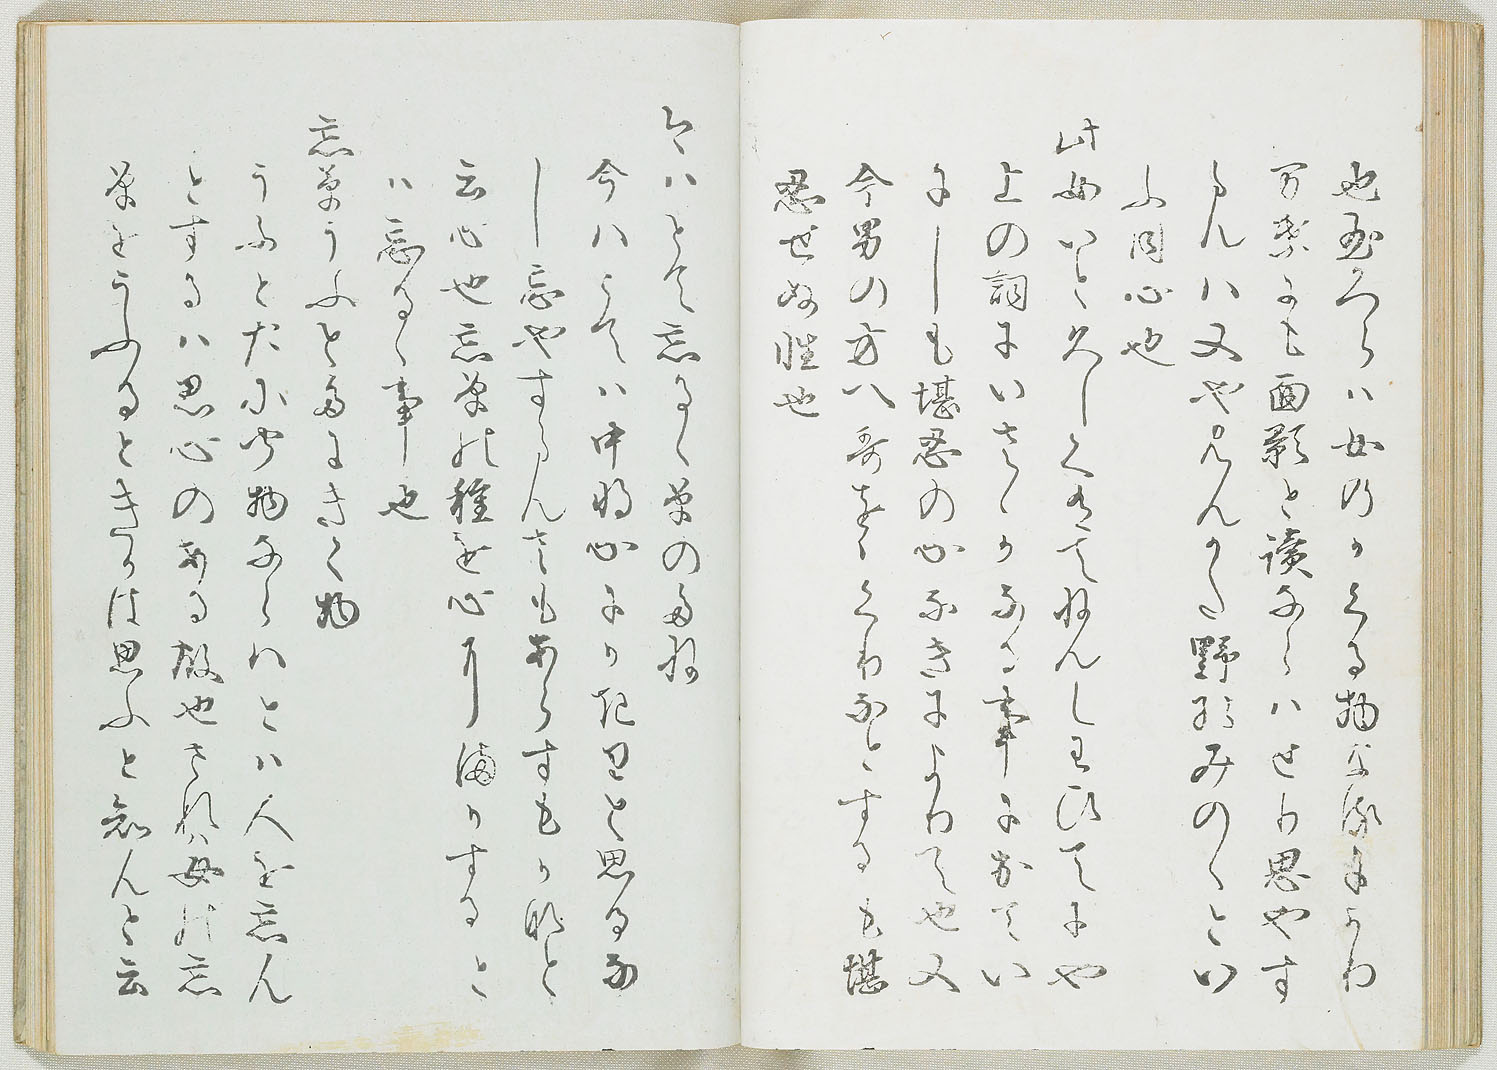 也玉かつらハ女のかくる物な故によりて
万葉にも面影と讀ならハせり思やす
らんハ又や見んかた野のみのゝとい
ふ同心也
此女いと久しくありてねんしわひてにや
上の詞にいさゝかなる事にかてい
にしも堪忍の心なきによりて也又
今男の方ハ哥をくりなとするも堪
忍せぬ性也
今ハとて忘るゝ草のたね
今ハとてハ中わろきによりかきりと思るな
し忘やすらんさもあらすもかなと
云心也忘草の種を心にまかすると
ハ忘るゝ事也
忘草うふとたにきく物
うふとたに聞物ならハとハ人を忘ん
とするハ思心のある故也されハ女の忘
草をうふるときかは思ふと知んと云